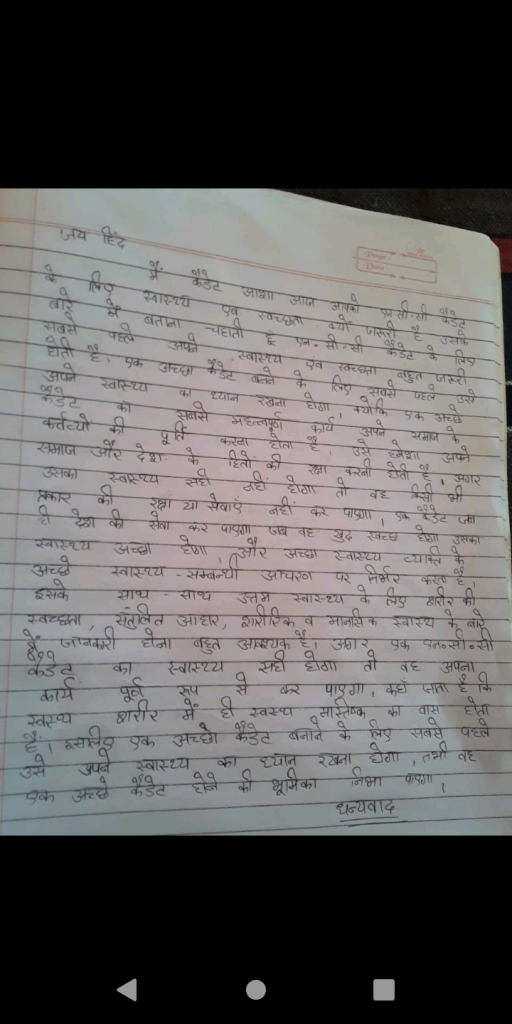 जय हिंद
मैं कैडेट आशा आज आपको एन सी॰सी कैडेट
के लिए स्वास्थ्य एवं स्वच्छता क्यों जरूरी है उसके
बारे में बताना चहाती हूँ एन॰सी॰सी कैडेट के लिए
सबसे पहले अपने स्वास्थ्य एवं स्वच्छता बहुत जरूरी
होती है, एक अच्छा कैडेट बनने के लिए सबसे पहले उसे
अपने स्वास्थ्य का ध्यान रखना होगा, क्योकि एक अच्छे
कैडेट का सबसे महत्त्वपूर्ण कार्य अपने समाज के
कर्तव्यो की पूर्ति करना होता है, उसे हमेशा अपने
समाज और देश के हितों की रक्षा करनी होती है, अगर
उसका स्वास्थ्य सही नहीं होगा तो वह किसी भी
प्रकार की रक्षा या सेवाएं नहीं कर पाएगा, एक कैडेट तब
ही देश की सेवा कर पाएगा जब वह खुद स्वच्छ होगा उसका
स्वास्थ्य अच्छा होगा, और अच्छा स्वास्थ्य व्यक्ति के
अच्छे स्वास्थ्य-सम्बन्धी आचरण पर निर्भर करता है,
इसके साथ-साथ उत्तम स्वास्थ्य के लिए शरीर की
स्वच्छता, संतुलित आहार, शारीरिक व मानसिक स्वास्थ्य के बारे
में जानकारी होना बहुत आवश्यक है। अगर एक एन॰सी॰सी
कैडेट का स्वास्थ्य सही होगा तो वह अपना
कार्य पूर्ण रूप से कर पाएगा, कहाँ जाता है कि
स्वस्थ शरीर में ही स्वस्थ मास्तिष्क का वास होता
है। इसलिए एक अच्छा कैडेट बनाने के लिए सबसे पहले
उसे अपने स्वास्थ्य का ध्यान रखना होगा, तभी वह
एक अच्छे कैडेट होने की भूमिका निभा पाएगा।
धन्यवाद